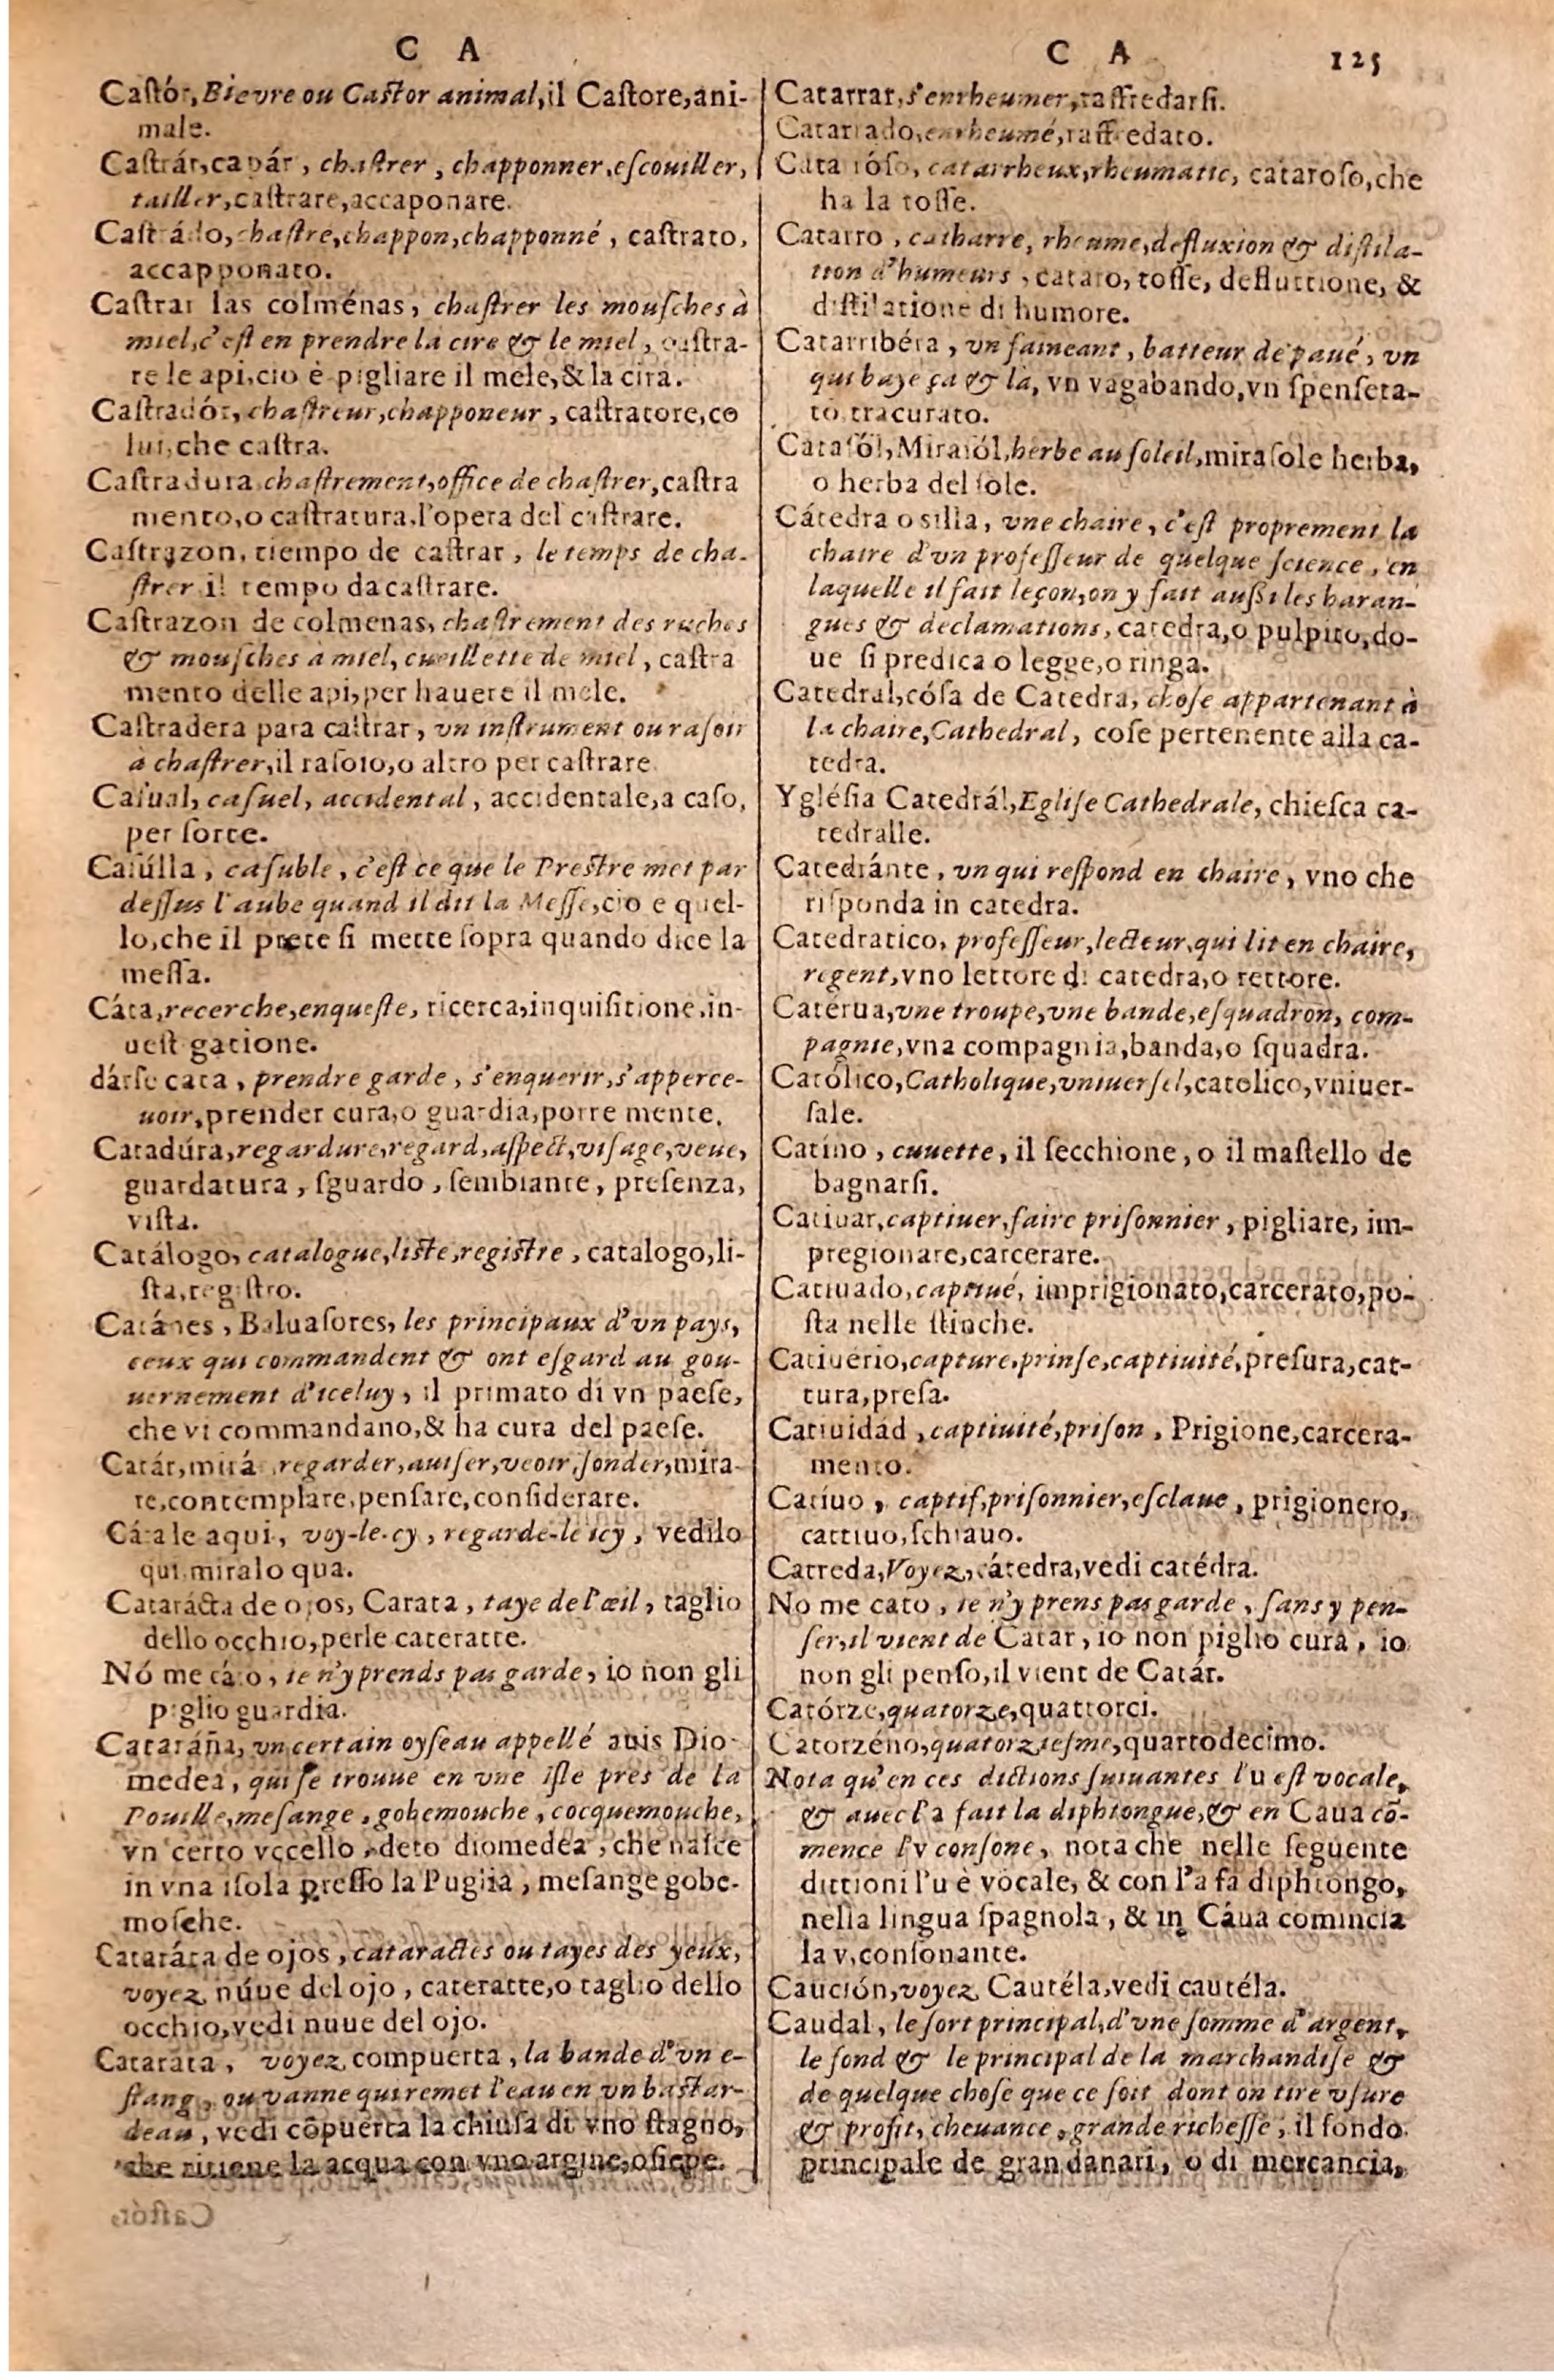 C A
Castór, Bievre ou Castor animal, il Castore, ani-
male.
Castrár, capár, chastrer, chapponner, escouiller,
tailler, castrare, accaponare.
Castrádo, chastre, chappon, chapponné, castrato,
accapponato.
Castrar las colménas, chastrer les mousches à
miel, c'est en prendre la cire & le miel, castra-
re le api, cio è pigliare il mele, & la cira.
Castradór, chastreur, chapponeur, castratore, co
lui, che castra.
Castradura chastrement, office de chastrer, castra
mento, o castratura, l'opera del castrare.
Castrazon, tiempo de castrar, le temps de cha-
strer il tempo da castrare.
Castrazon de colmenas, chastrement des ruches
& mousches a miel, cueillette de miel, castra
mento delle api, per hauere il mele.
Castradera para castrar, vn instrument ou rasoir
à chastrer, il rasoio, o altro per castrare.
Casual, casuel, accidental, accidentale, a caso,
per sorte.
Casúlla, casuble, c'est ce que le Prestre met par
dessus l'aube quand il dit la Messe, cio e quel-
lo, che il prete si mette sopra quando dice la
messa.
Cáta, recerche, enqueste, ricerca, inquisitione, in-
uest gatione.
dárse cata, prendre garde, s'enquerir, s'apperce-
uoir, prender cura, o guardia, porre mente.
Catadúra, regardure, regard, aspect, visage, veue,
guardatura, sguardo, sembiante, presenza,
vista.
Catálogo, catalogue, liste, registre, catalogo, li-
sta, registro.
Catánes, Baluasores, les principaux d'vn pays,
ceux qui commandent & ont esgard au gou-
uernement d'iceluy, il primato di vn paese,
che vi commandano, & ha cura del paese.
Catár, mirá regarder, auiser, veoir, sonder, mira-
re, contemplare, pensare, considerare.
Cátale aqui, voy-le-cy, regarde-le icy, vedilo
qui, miralo qua.
Catarácta de ojos, Carata, taye de l'œil, taglio
dello occhio, perle cateratte.
Nó me cáto, ie n'y prends pas garde, io non gli
piglio guardia.
Cataráña, vn certain oyseau appellé auis Dio-
medea, qui se trouue en vne isle pres de la
Pouille, mesange, gobemouche, cocquemouche,
vn certo vccello, deto diomedea, che nasce
in vna isola presso la Puglia, mesange gobe-
mosche.
Cataráta de ojos, cataractes ou tayes des yeux,
voyez núue del ojo, cateratte, o taglio dello
occhio, vedi nuue del ojo.
Catarata, voyez compuerta, la bande d'vn e-
stang, ou vanne qui remet l'eau en vn bastar-
deau, vedi cõpuerta la chiusa di vno stagno,
che ritiene la acqua con vno argine, o siepe.
C A 125
Catarrar, s'enrheumer, raffredarsi.
Catarrado, enrheumé, raffredato.
Catarróso, catarrheux, rheumatic, cataroso, che
ha la tosse.
Catarro, catharre, rheume, defluxion & distila-
tion d'humeurs, cataro, tosse, defluttione, &
distilatione di humore.
Catarribéra, vn faineant, batteur de paué, vn
qui baye ça & là, vn vagabando, vn spenseta-
to, tracurato.
Catasól, Mirasól, herbe au soleil, mirasole herba,
o herba del sole.
Cátedra o silla, vne chaire, c'est proprement la
chaire d'vn professeur de quelque science, en
laquelle il fait leçon, on y fait aussi les haran-
gues & declamations, catedra, o pulpito, do-
ue si predica o legge, o ringa.
Catedral, cósa de Catedra, chose appartenant à
la chaire, Cathedral, cose pertenente alla ca-
tedra.
Yglésia Catedrál, Eglise Cathedrale, chiesca ca-
tedralle.
Catedránte, vn qui respond en chaire, vno che
risponda in catedra.
Catedratico, professeur, lecteur, qui lit en chaire,
regent, vno lettore di catedra, o rettore.
Catérua, vne troupe, vne bande, esquadron, com-
pagnie, vna compagnia, banda, o squadra.
Católico, Catholique, vniuersel, catolico, vniuer-
sale.
Catino, cuuette, il secchione, o il mastello de
bagnarsi.
Catiuar, captiuer, faire prisonnier, pigliare, im-
pregionare, carcerare.
Catiuado, captiué, imprigionato, carcerato, po-
sta nelle stinche.
Catiuerio, capture, prinse, captiuité, presura, cat-
tura, presa.
Catiuidád, captiuité, prison, Prigione, carcera-
mento.
Catíuo, captif, prisonnier, esclaue, prigionero,
cattiuo, schiauo.
Catreda, Voyez, cátedra, vedi catédra.
No me cato, ie n'y prens pas garde, sans y pen-
ser, il vient de Catar, io non piglio cura, io
non gli penso, il vient de Catár.
Catórze, quatorze, quattorci.
Catorzéno, quatorziesme, quartodecimo.
Nota qu'en ces dictions suiuantes l'u est vocale,
& auec l'a fait la diphtongue, & en Caua cõ-
mence l'v consone, nota che nelle seguente
dittioni l'u è vocale, & con l'a fa diphtongo,
nella lingua spagnola, & in Cáua comincia
la v, consonante.
Caución, voyez Cautéla, vedi cautéla.
Caudal, le sort principal, d'vne somme d'argent,
le fond & le principal de la marchandise &
de quelque chose que ce soit dont on tire vsure
& profit, cheuance, grande richesse, il fondo
principale de gran danari, o di mercancia,